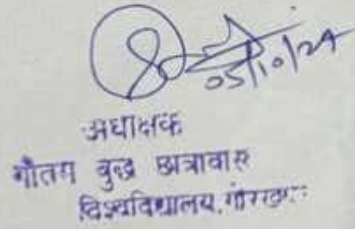 05/10/24
अधीक्षक
गौतम बुद्ध छात्रावास
विश्वविद्यालय,